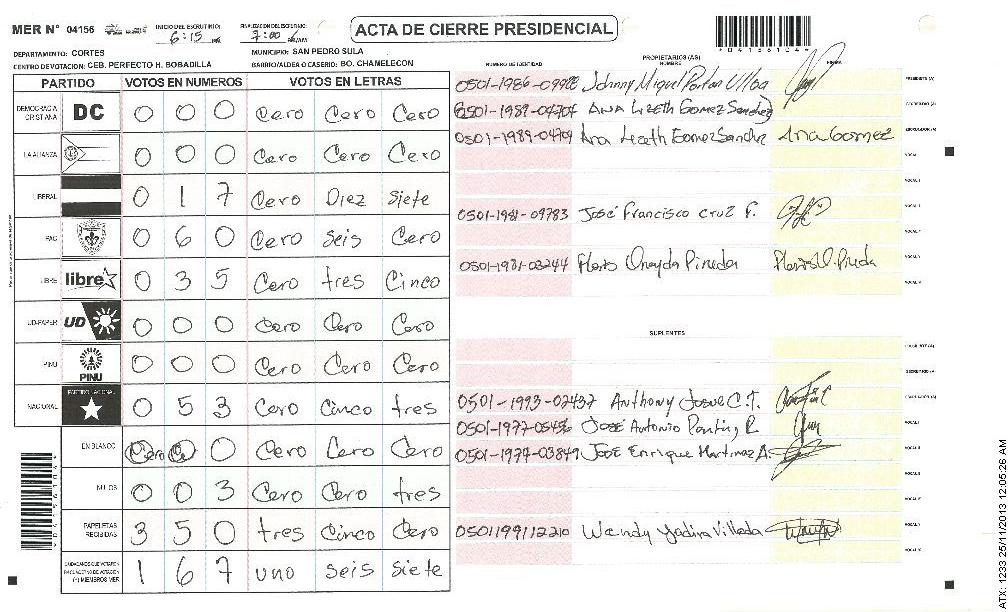 MER N° 04156 INICIO DEL ESCRUTINIO: 6:15 FINALIZACION DEL ESCRUTINIO: 7:00
ACTA DE CIERRE PRESIDENCIAL
DEPARTAMENTO: CORTES MUNICIPIO: SAN PEDRO SULA
CENTRO DE VOTACION: CEB. PERFECTO H. BOBADILLA BARRIO/ALDEA O CASERIO: BO. CHAMELECON
PARTIDO VOTOS EN NUMEROS VOTOS EN LETRAS
DEMOCRACIA CRISTIANA DC 0 0 0 Cero Cero Cero
LA ALIANZA 0 0 0 Cero Cero Cero
LIBERAL 0 1 7 Cero Diez Siete
PAC 0 6 0 Cero Seis Cero
LIBRE libre 0 3 5 Cero tres Cinco
UD-FAPER UD 0 0 0 Cero Cero Cero
PINU PINU 0 0 0 Cero Cero Cero
NACIONAL PARTIDO NACIONAL 0 5 3 Cero Cinco tres
EN BLANCO Cero 0 0 Cero Cero Cero
NULOS 0 0 3 Cero Cero tres
PAPELETAS RECIBIDAS 3 5 0 tres Cinco Cero
CIUDADANOS QUE VOTARON EN CUADERNO DE VOTACION (+) MIEMBROS MER 1 6 7 uno seis siete
NUMERO DE IDENTIDAD PROPIETARIOS (AS) NOMBRE FIRMA
0501-1986-09988 Johnny Miguel PRESIDENTE (A)
0501-1989-04704 Ana Lizeth Gomez Sanchez SECRETARIO (A)
0501-1989-04704 Ana Lizeth Gomez Sanchez Ana Gomez ESCRUTADOR (A)
VOCAL I
0501-1981-09783 José Francisco Cruz F.
0501-1981-03244 Oneyda Pineda
SUPLENTES
0501-1993-02437 Anthony Josue C.T.
0501-1977-05456 José Antonio
0501-1974-03849 José Enrique Martinez A.
0501199112210 Wendy Yadira Villeda
ATX: 1233 25/11/2013 12:05:26 AM